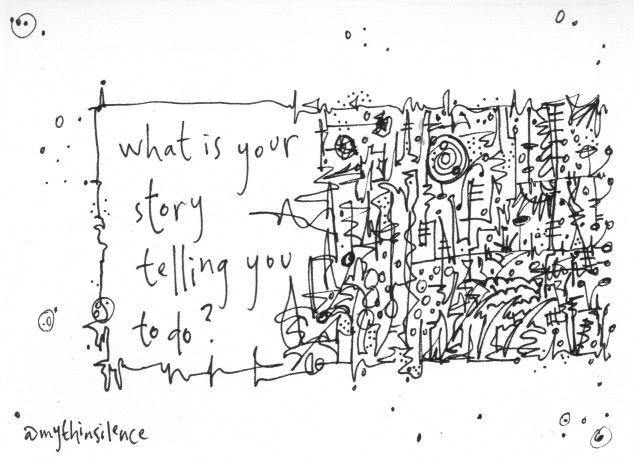 what is your
story
telling you
to do?
@mythinsilence